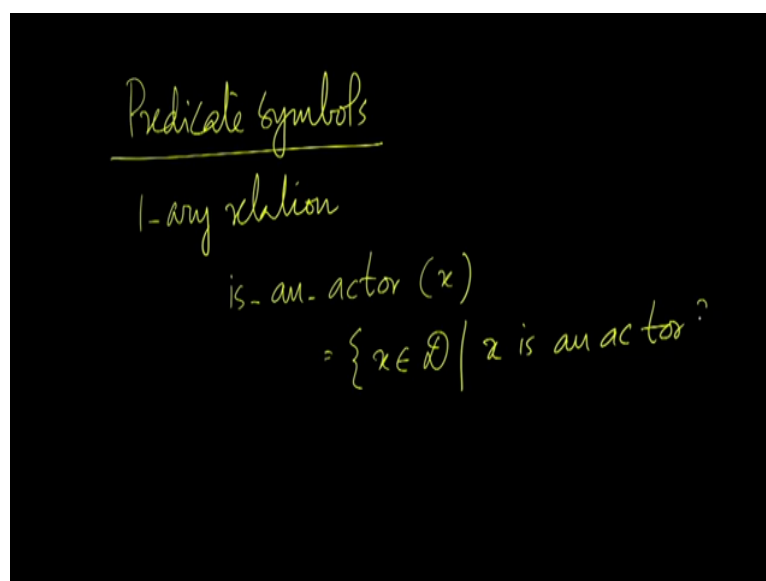 Predicate Symbols
1-ary relation
is-an-actor (x)
= {x ∈ D | x is an actor